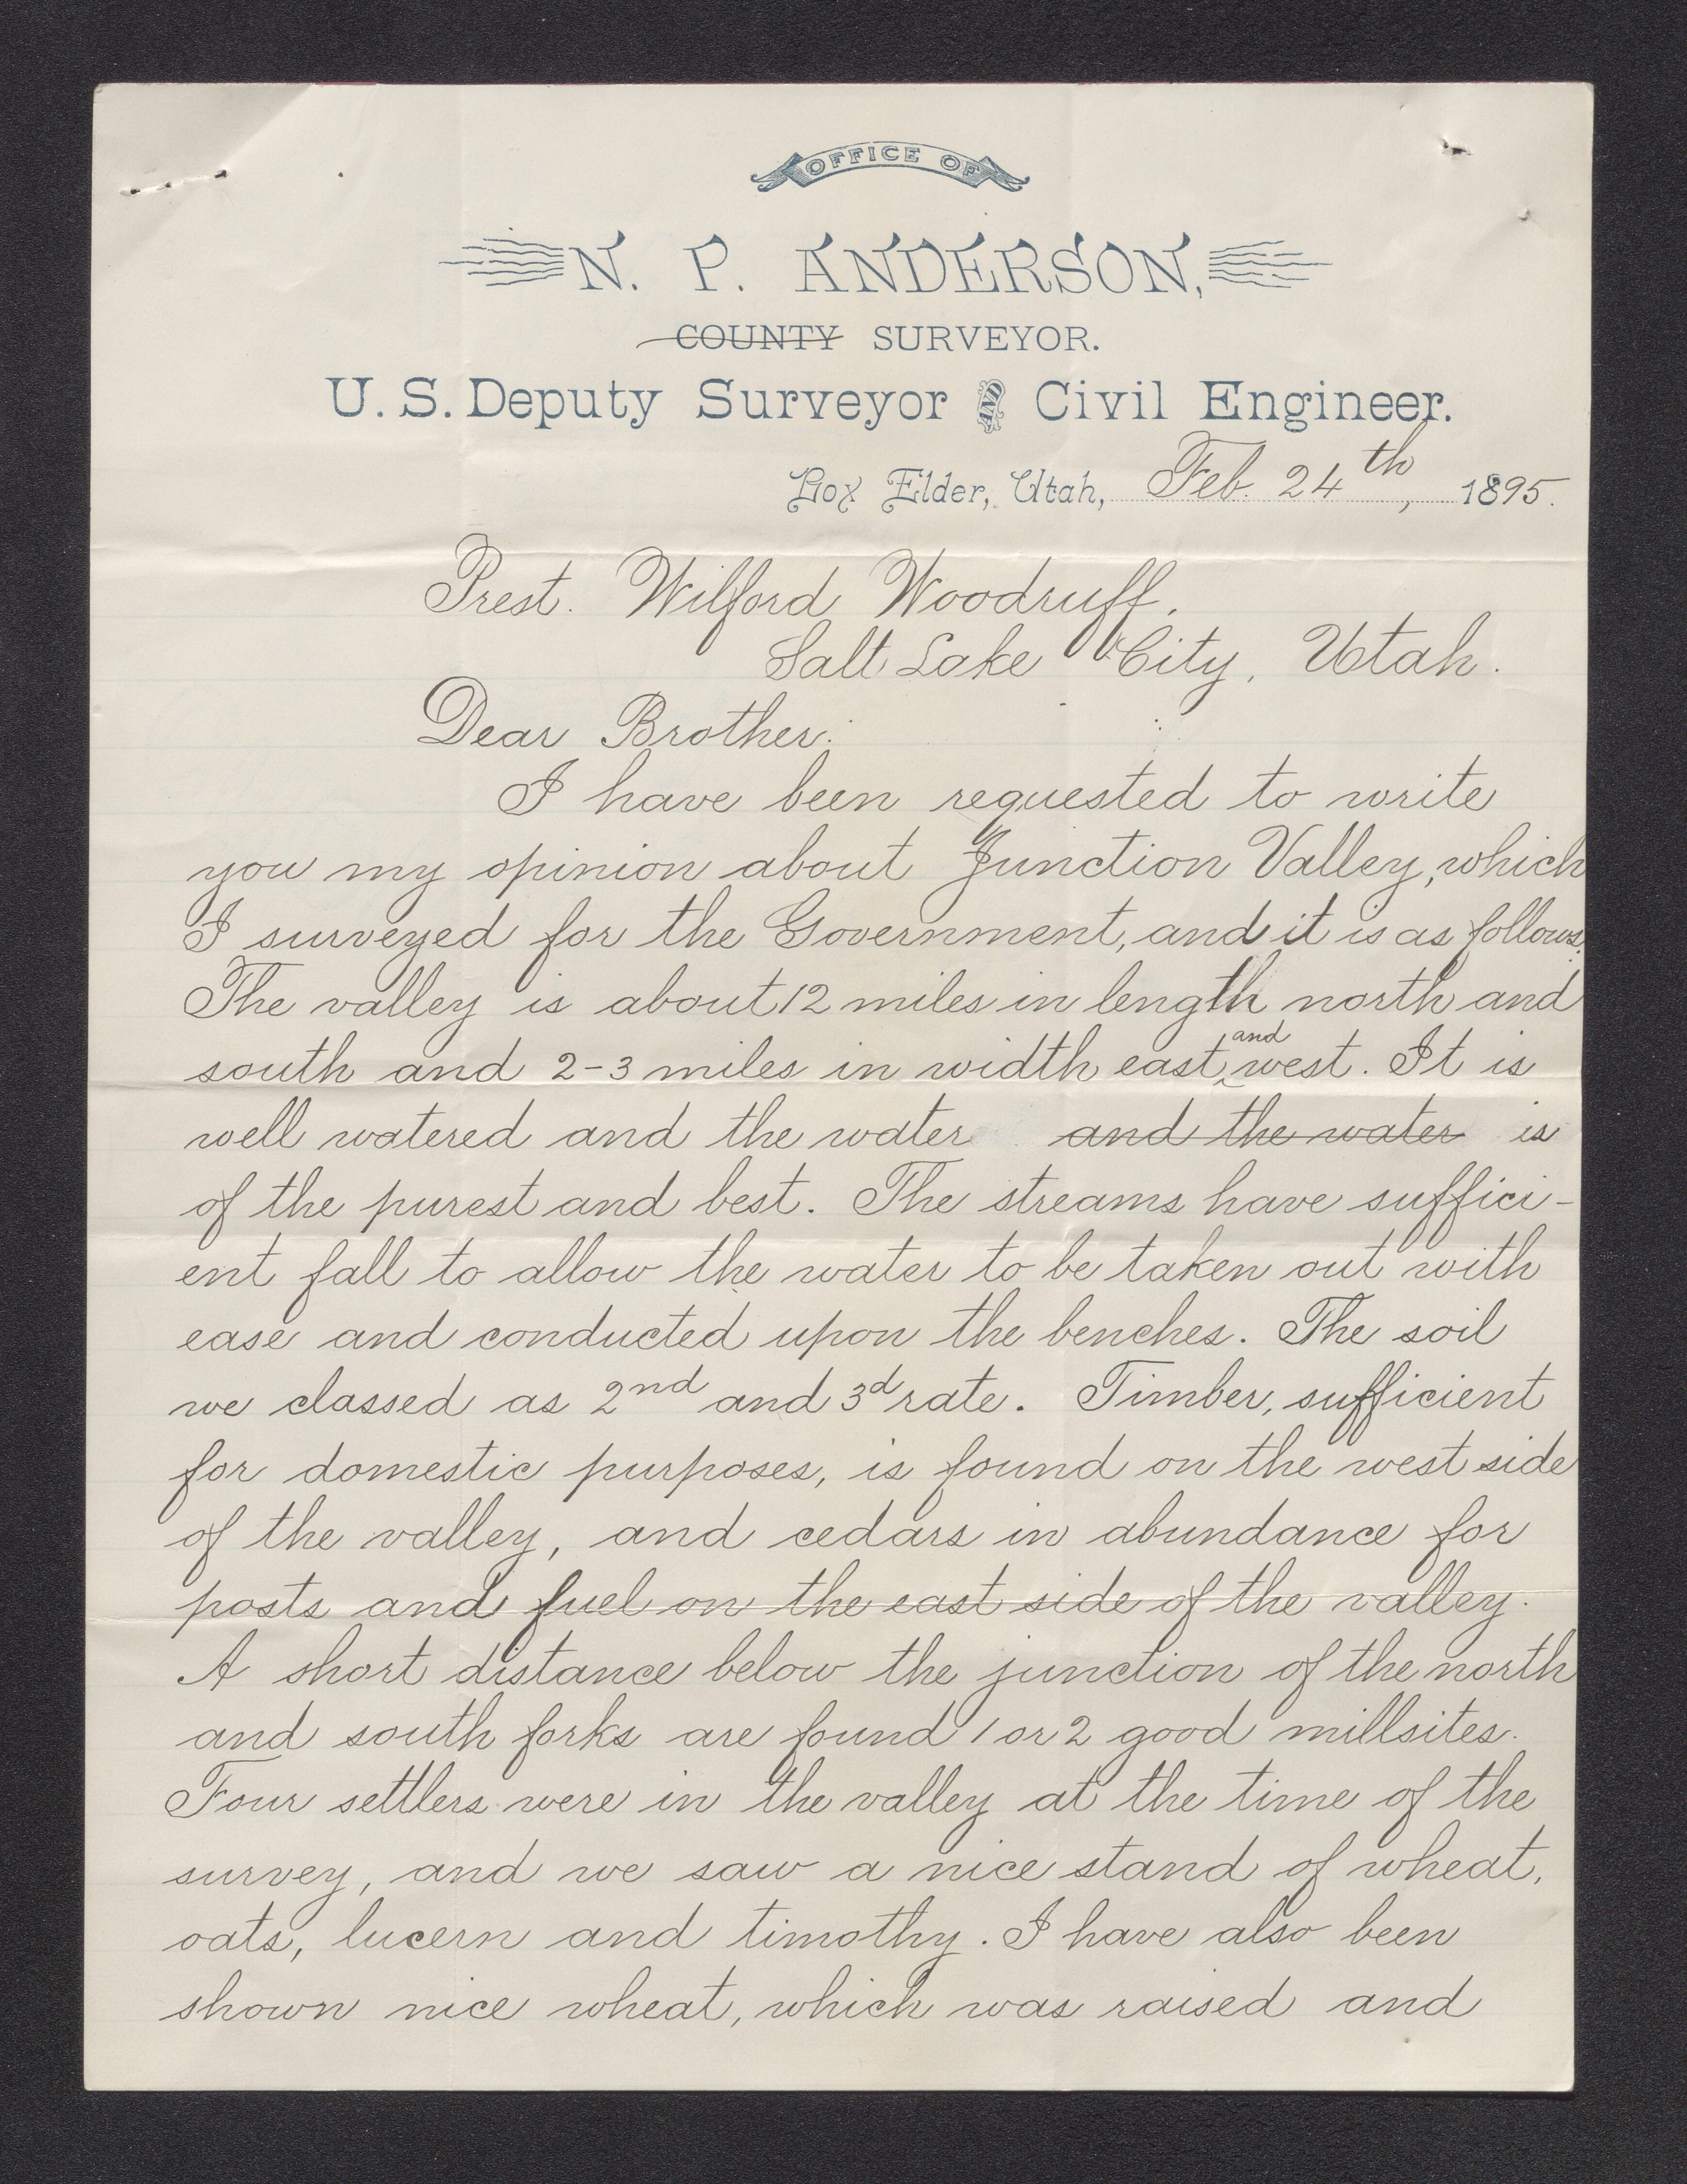 OFFICE OF
N. P. ANDERSON,
COUNTY SURVEYOR.
U.S. Deputy Surveyor AND Civil Engineer.
Box Elder, Utah, Feb. 24th, 1895.
Prest. Wilford Woodruff.
Salt Lake City, Utah.
Dear Brother:
I have been requested to write
you my opinion about Junction Valley, which
I surveyed for the Government, and it is as follows:
The valley is about 12 miles in length north and
south and 2-3 miles in width east and west. It is
well watered and the water and the water is
of the purest and best. The streams have suffici-
ent fall to allow the water to be taken out with
ease and conducted upon the benches. The soil
we classed as 2nd and 3d rate. Timber, sufficient
for domestic purposes, is found on the west side
of the valley, and cedars in abundance for
posts and fuel on the east side of the valley.
A short distance below the junction of the north
and south forks are found 1 or 2 good millsites.
Four settlers were in the valley at the time of the
survey, and we saw a nice stand of wheat,
oats, lucern and timothy. I have also been
shown nice wheat, which was raised and